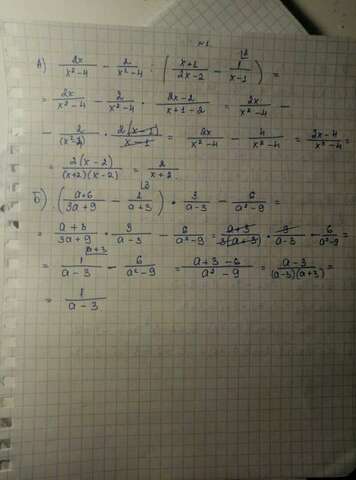 №1
А) 2x/(x²-4) - 2/(x²-4) : ((x+1)/(2x-2) - 1/(x-1)) =
= 2x/(x²-4) - 2/(x²-4) · (2x-2)/(x+1-2) = 2x/(x²-4) -
- 2/(x²-4) · 2(x-1)/(x-1) = 2x/(x²-4) - 4/(x²-4) = (2x-4)/(x²-4) =
= 2(x-2)/((x+2)(x-2)) = 2/(x+2)
Б) ((a+6)/(3a+9) - 1/(a+3)) · 3/(a-3) - 6/(a²-9) =
= (a+3)/(3a+9) · 3/(a-3) - 6/(a²-9) = (a+3)/(3(a+3)) · 3/(a-3) - 6/(a²-9) =
= 1/(a-3) - 6/(a²-9) = (a+3-6)/(a²-9) = (a-3)/((a-3)(a+3)) =
= 1/(a-3)